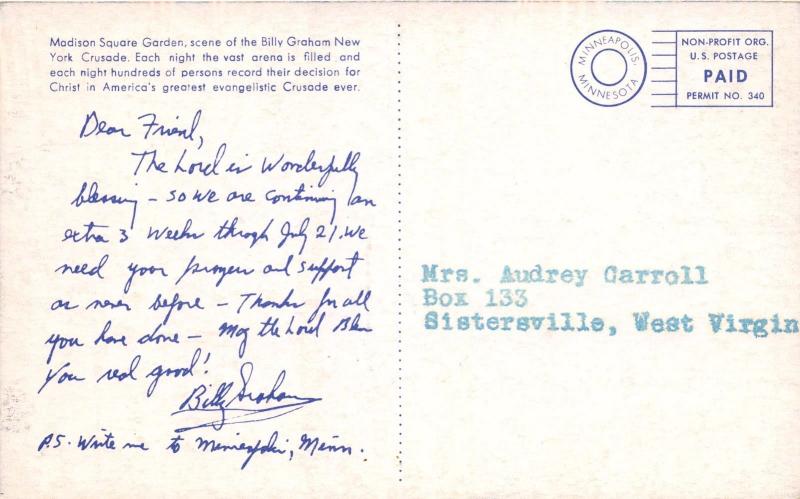 Madison Square Garden, scene of the Billy Graham New
York Crusade. Each night the vast arena is filled and
each night hundreds of persons record their decision for
Christ in America's greatest evangelistic Crusade ever.
Dear Friend,
The Lord is Wonderfully
blessing — so we are continuing an
extra 3 weeks through July 21. We
need your prayers and support
as never before — Thanks for all
you have done — May the Lord Bless
You real good!
Billy Graham
P.S. Write me to Minneapolis, Minn.
MINNEAPOLIS,
MINNESOTA
NON-PROFIT ORG.
U. S. POSTAGE
PAID
PERMIT NO. 340
Mrs. Audrey Carroll
Box 133
Sistersville, West Virgin